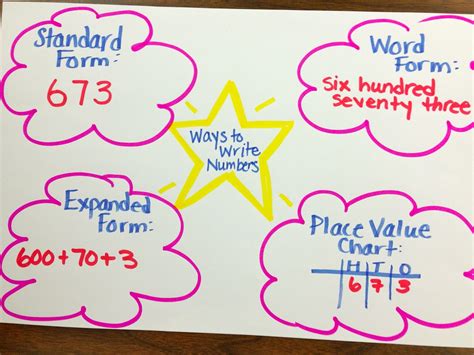 Standard
Form:
673
Word
Form:
six hundred
seventy three
Ways to
Write
Numbers
Expanded
Form:
600+70+3
Place Value
Chart:
H T O
6 7 3